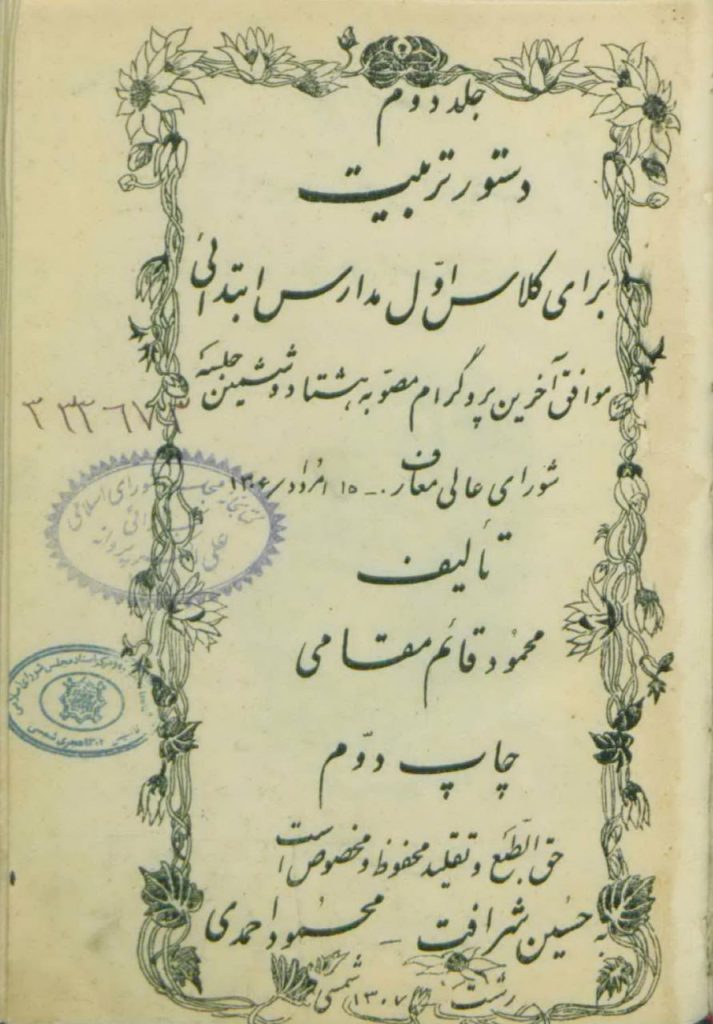 جلد دوم
دستور تربیت
برای کلاس اوّل مدارس ابتدائی
موافق آخرین پروگرام مصوّبه هشتاد و ششمین جلسه
شورای عالی معارف ۱۵ امرداد
تألیف
محمود قائم مقامی
چاپ دوّم
حق الطّبع و تقلید محفوظ و مخصوص است
به حسین شرافت - محمود احمدی
رشت ۱۳۰۷ شمسی
کتابخانه مجلس شورای اسلامی